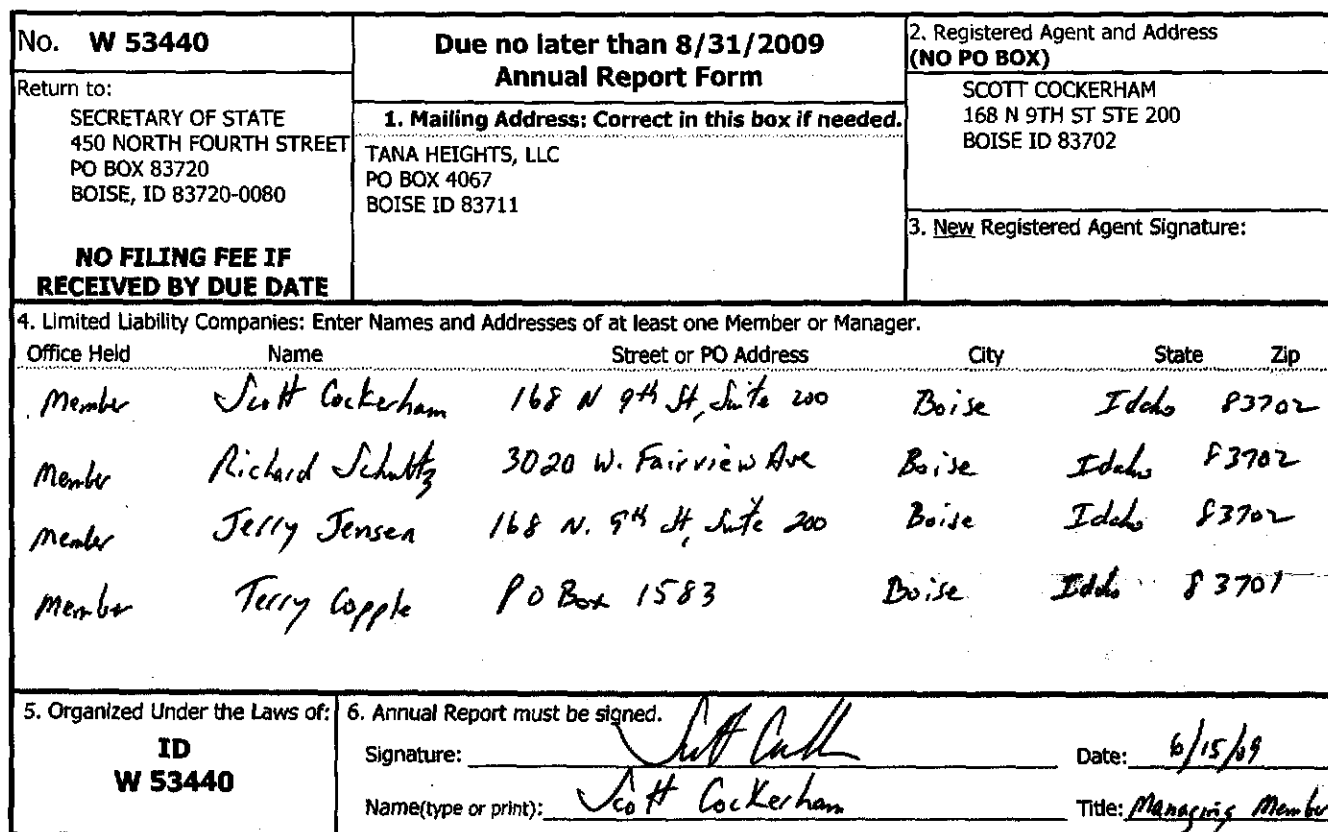 No. W 53440
Return to:
SECRETARY OF STATE
450 NORTH FOURTH STREET
PO BOX 83720
BOISE, ID 83720-0080
NO FILING FEE IF
RECEIVED BY DUE DATE
Due no later than 8/31/2009
Annual Report Form
1. Mailing Address: Correct in this box if needed.
TANA HEIGHTS, LLC
PO BOX 4067
BOISE ID 83711
2. Registered Agent and Address
(NO PO BOX)
SCOTT COCKERHAM
168 N 9TH ST STE 200
BOISE ID 83702
3. New Registered Agent Signature:
4. Limited Liability Companies: Enter Names and Addresses of at least one Member or Manager.
Office Held Name Street or PO Address City State Zip
Member Scott Cockerham 168 N 9th St, Suite 200 Boise Idaho 83702
Member Richard Schultz 3020 W. Fairview Ave Boise Idaho 83702
Member Jerry Jensen 168 N. 9th St, Suite 200 Boise Idaho 83702
Member Terry Copple PO Box 1583 Boise Idaho 83701
5. Organized Under the Laws of:
ID
W 53440
6. Annual Report must be signed.
Signature: Scott Cockerham Date: 6/15/09
Name(type or print): Scott Cockerham Title: Managing Member